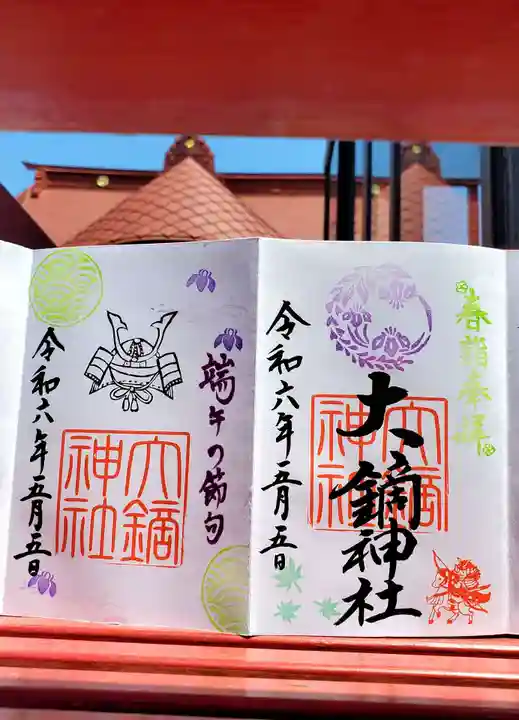 春詣奉拝
大鏑神社
大鏑神社
令和六年五月五日
端午の節句
大鏑神社
令和六年五月五日